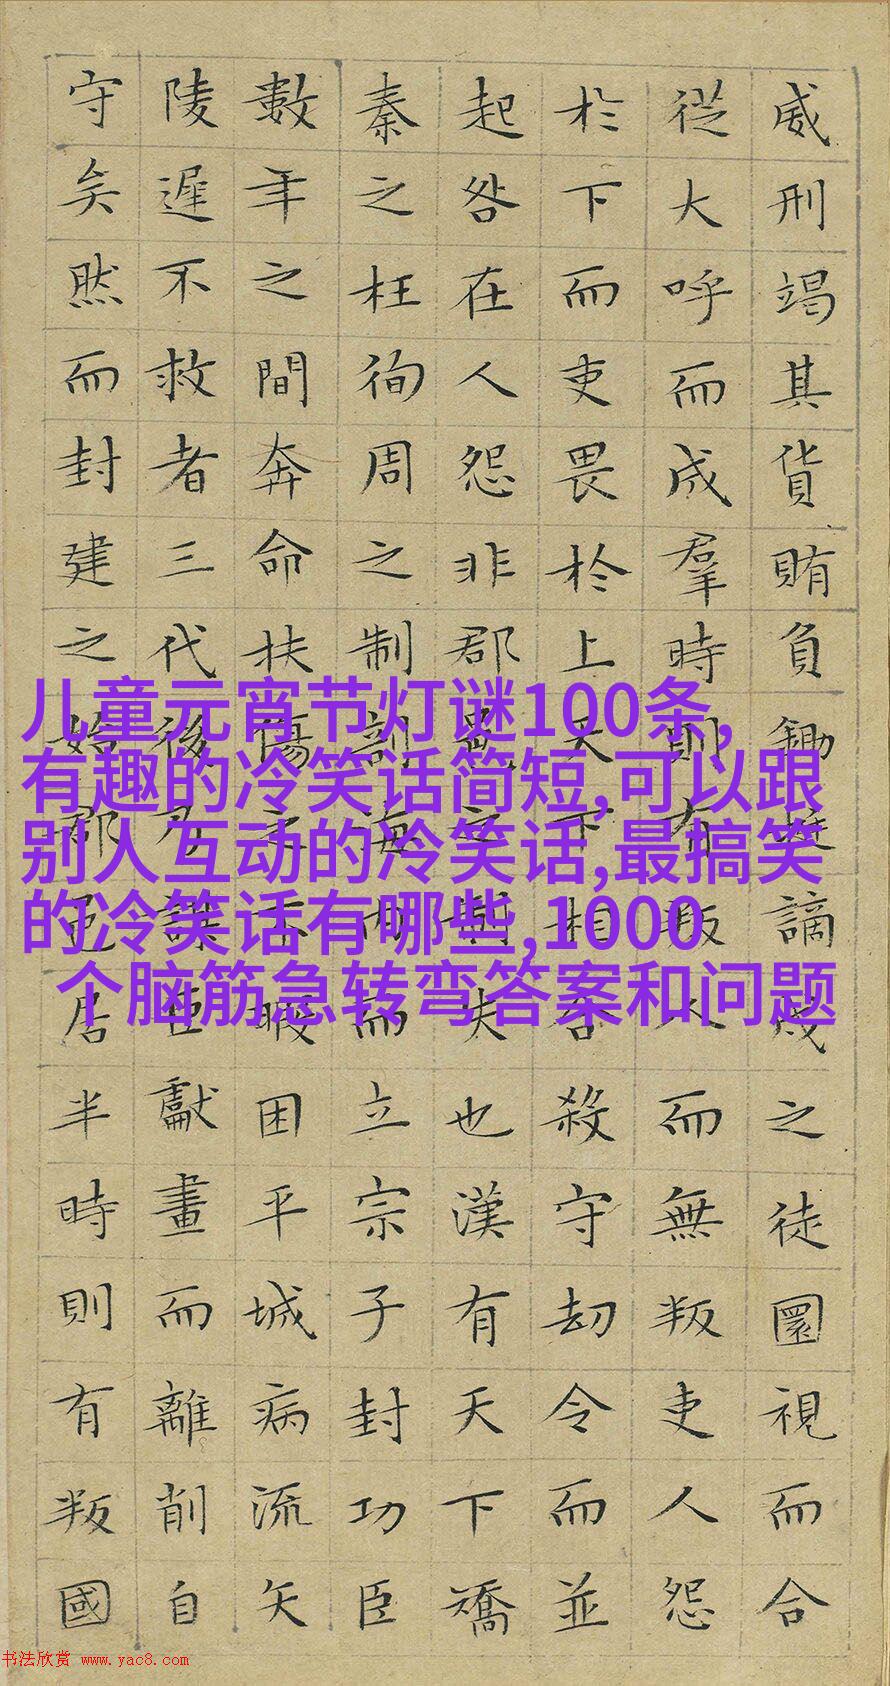 威刑竭其貨賄負鋤梃謫戍之徒圜視而合
從大呼而成羣時則有叛人而無叛吏人怨
於下而吏畏於上天下相合殺守劫令而並
起咎在人怨非郡邑之制失也漢有天下矯
秦之枉徇周之制剖海內而立宗子封功臣
數年之間奔命扶傷之不暇困平城病流矢
陵遲不救者三代後乃謀臣獻畫而離削自
守矣然而封建之始郡邑居半時則有叛國
儿童元宵节灯谜100条,
有趣的冷笑话简短,可以跟
别人互动的冷笑话,最搞笑
的冷笑话有哪些,1000
个脑筋急转弯答案和问题
书法欣赏 www.yac8.com